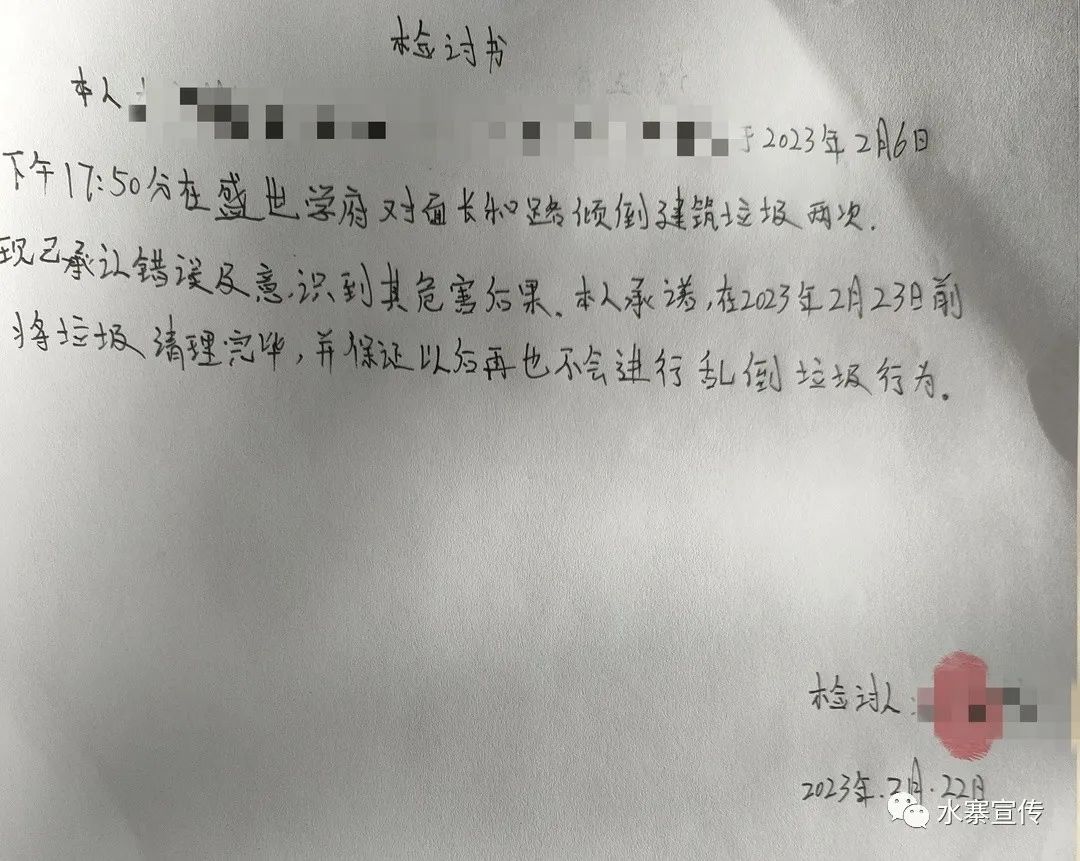 检讨书
本人
于2023年2月6日
下午17:50分在盛世学府对面长和路倾倒建筑垃圾两次.
现已承认错误及意识到其危害后果、本人承诺,在2023年2月23日前
将垃圾清理完毕,并保证以后再也不会进行乱倒垃圾行为。
检讨人:
2023年.2月.22日
水寨宣传